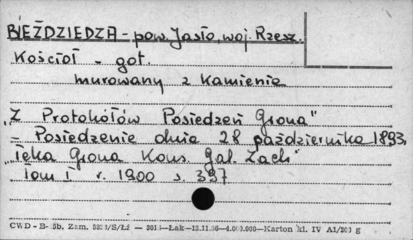 BIEŹDZIEDZA - pow. Jasło, woj. Rzesz.
Kościół - got.
murowany z kamienia
"Z Protokółów Posiedzeń Grona"
- Posiedzenie dnia 28 października 1893.
"Teka Grona Kons. Gal. Zach"
tom I r. 1900 s. 397
CWD - B- Zam. Łak - Karton kl. IV A1/203 g